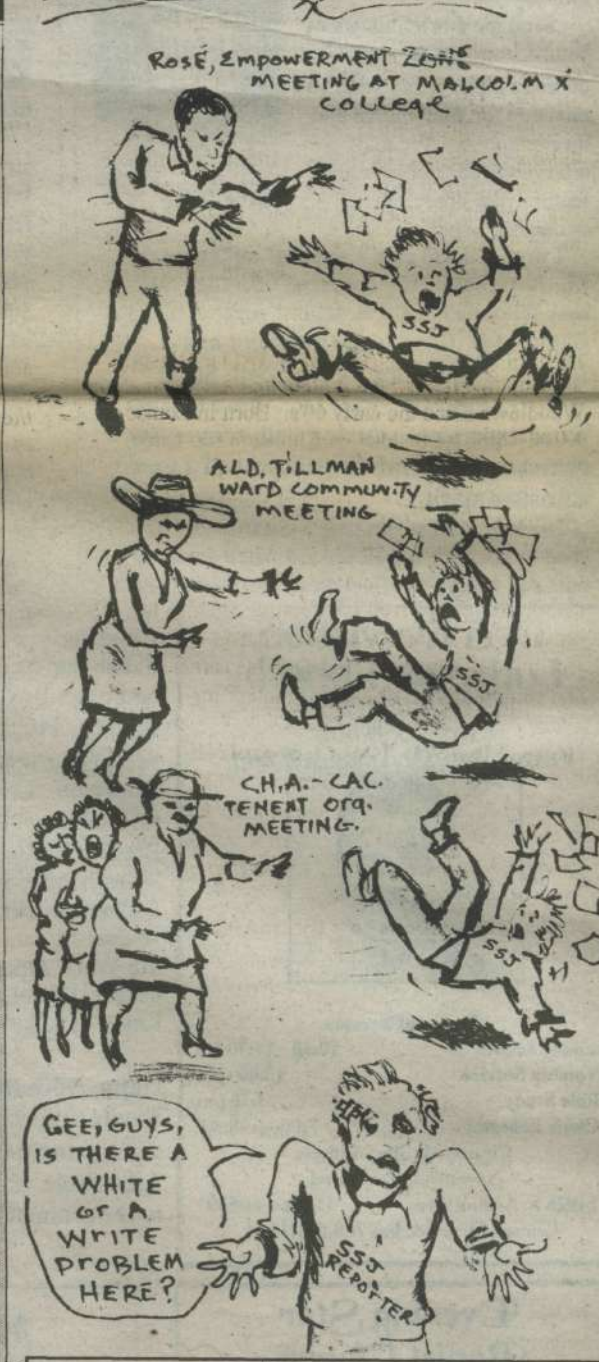 ROSÉ, EMPOWERMENT ZONE
MEETING AT MALCOLM X
COLLEGE
SSJ
ALD. TILLMAN
WARD COMMUNITY
MEETING
SSJ
C.H.A.-CAC.
TENENT ORG.
MEETING.
SSJ
GEE, GUYS,
IS THERE A
WHITE
or A
WRITE
PROBLEM
HERE?
SSJ
REPOTTER